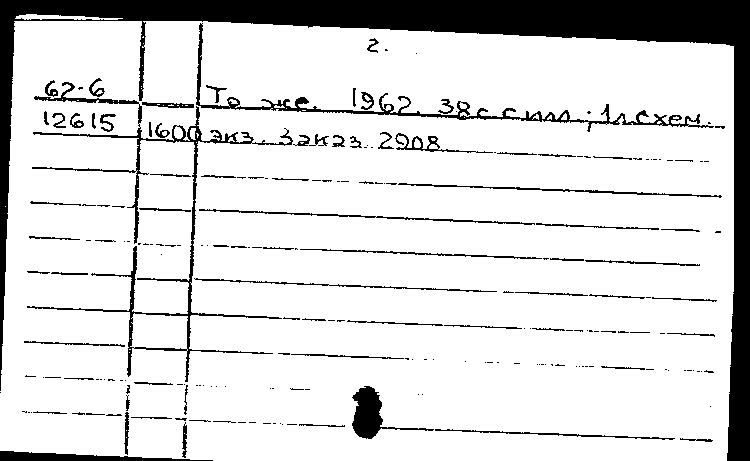 2.
62-6 То же. 1962. 38с с илл.; 1л схем.
12615 1600 экз. Заказ 2908